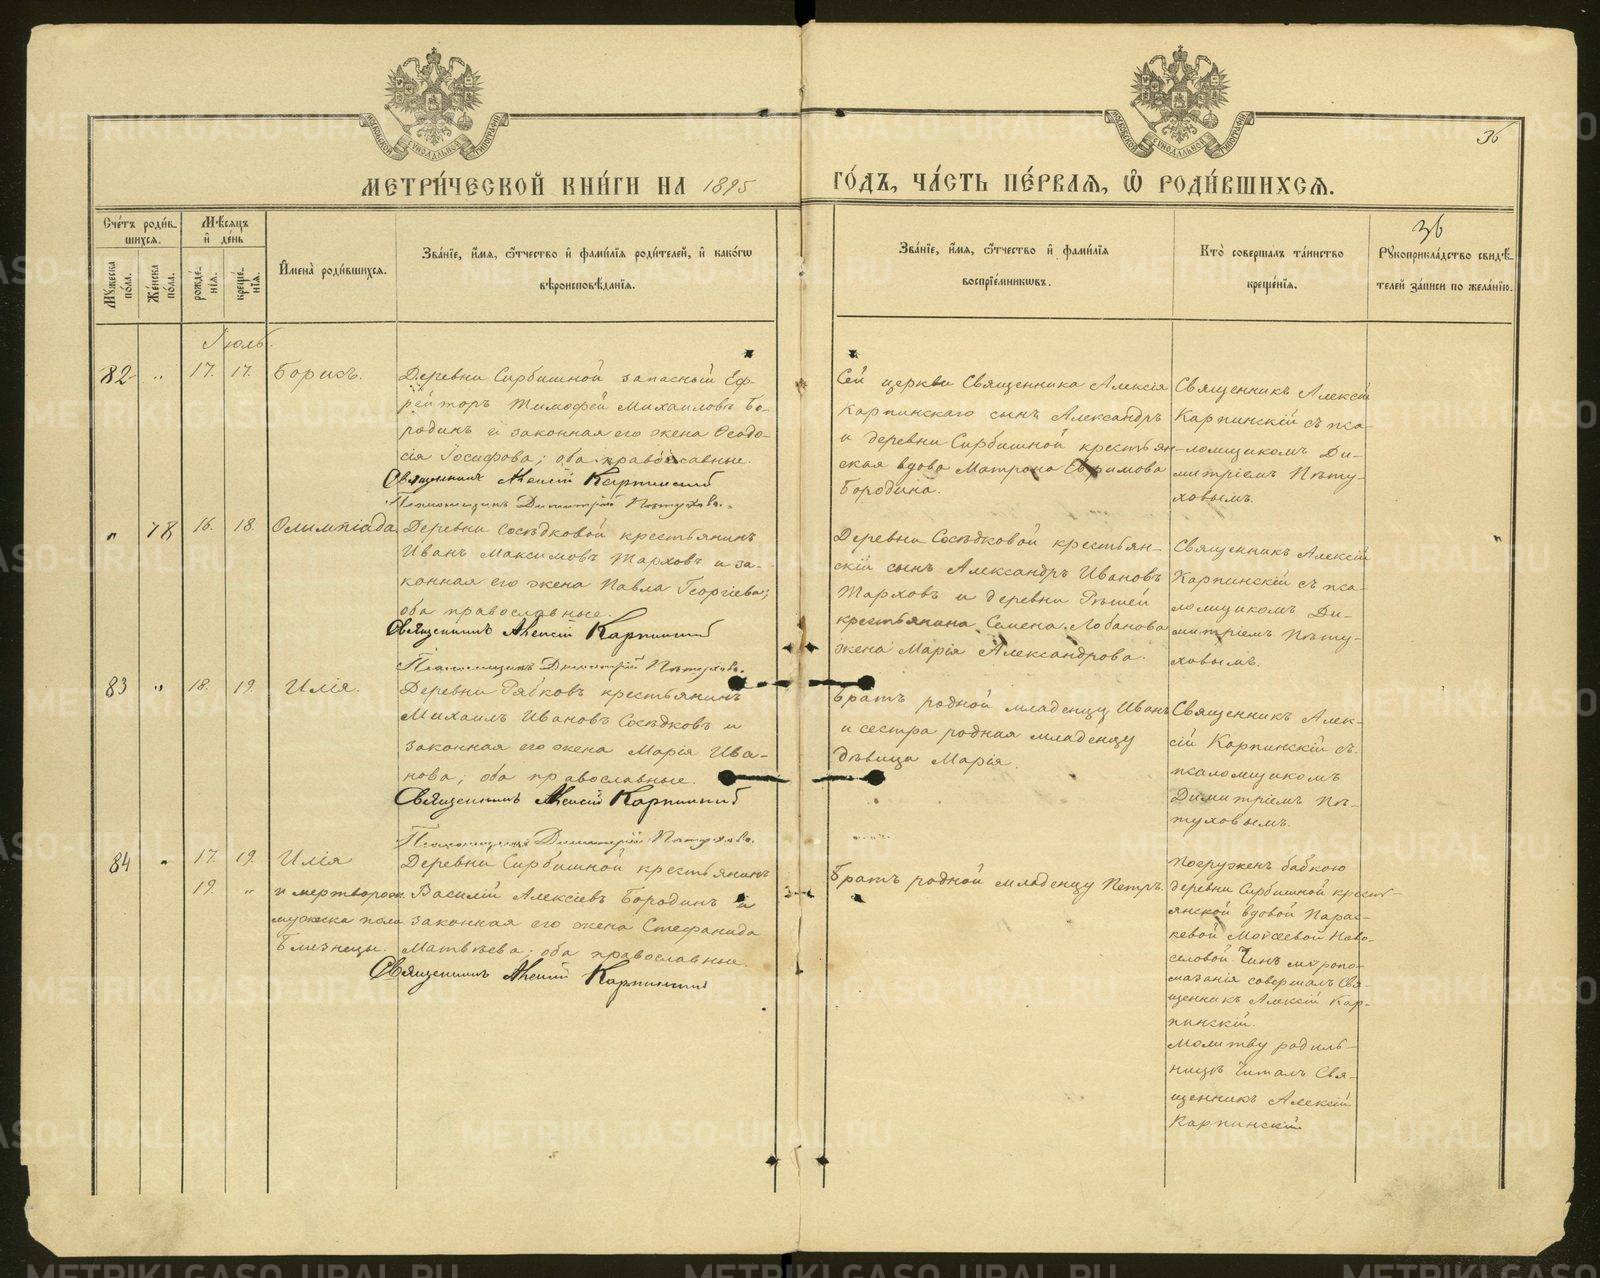 36
МОСКОВСКОЙ СѴНОДАЛЬНОЙ ТИПОГРАФІИ
МОСКОВСКОЙ СѴНОДАЛЬНОЙ ТИПОГРАФІИ
МЕТРИ́ЧЕСКОЙ КНИ́ГИ НА 1895 ГО́ДЪ, ЧА́СТЬ ПЕ́РВАѦ, Ѽ РОДИ́ВШИХСѦ.
36
Сче́тъ роди́в-
шихсѧ.
Мꙋ́жеска по́ла.
Же́нска по́ла.
Мѣ́сѧцъ
и҆ де́нь
рожде́-нїѧ.
креще́-нїѧ.
И҆мена̀ роди́вшихсѧ.
Зва́нїе, и҆́мѧ, ѻ҆́тчество и҆ фами́лїѧ роди́телей, и҆ како́гѡ
вѣроисповѣ́данїѧ.
Зва́нїе, и҆́мѧ, ѻ҆́тчество и҆ фами́лїѧ
воспрїе́мникѡвъ.
Кто̀ соверша́лъ та́инство
креще́нїѧ.
Рꙋкоприкла́дство свидѣ́-
телей за́писи по жела́нїю.
Іюль.
82 " 17. 17. Борисъ.
Деревни Сирбишной запасный Еф-
рейторъ Тимофей Михаиловъ Бо-
родинъ и законная его жена Ѳеодо-
сія Іосифова; оба православные.
Священникъ Алексій Карпинскій
Псаломщикъ Димитрій Пѣтуховъ.
Сей церкви Священника Алексія
Карпинскаго сынъ Александръ
и деревни Сирбишной крестьян-
ская вдова Матрона Ефримова
Бородина.
Священникъ Алексій
Карпинскій съ пса-
ломщикомъ Ди-
митріемъ Пѣту-
ховымъ.
" 78 16. 18. Олимпіада
Деревни Сосѣдковой крестьянинъ
Иванъ Максимовъ Тарховъ и за-
конная его жена Павла Георгіева;
оба православные.
Священникъ Алексій Карпинскій
Псаломщикъ Димитрій Пѣтуховъ.
Деревни Сосѣдковой крестьян-
скій сынъ Александръ Ивановъ
Тарховъ и деревни
крестьянина Семена Лобанова
жена Марія Александрова.
Священникъ Алексій
Карпинскій съ пса-
ломщикомъ Ди-
митріемъ Пѣту-
ховымъ.
83 " 18. 19. Илія.
Деревни Рябковъ крестьянинъ
Михаилъ Ивановъ Сосѣдковъ и
законная его жена Марія Ива-
нова; оба православные.
Священникъ Алексій Карпинскій
Псаломщикъ Димитрій Пѣтуховъ.
Братъ родной младенцу Иванъ
и сестра родная младенцу
дѣвица Марія.
Священникъ Алек-
сій Карпинскій съ
псаломщикомъ
Димитріемъ Пѣ-
туховымъ.
84 " 17. 19. Илія
19. "
и мертворожд.
мужеска пола
Близнецы.
Деревни Сирбишной крестьянинъ
Василій Алексіевъ Бородинъ и
законная его жена Стефанида
Матвѣева; оба православные.
Священникъ Алексій Карпинскій
Братъ родной младенцу Петръ.
Погруженъ бабкою
деревни Сирбишной кресть-
янской вдовой Парас-
кевой Моѵсеевой Ново-
селовой Чинъ мѵропо-
мазанія совершалъ Свя-
щенникъ Алексій Кар-
пинскій.
Молитву родиль-
ницѣ читалъ Свя-
щенникъ Алексій
Карпинскій
METRIKI.GASO-URAL.RU